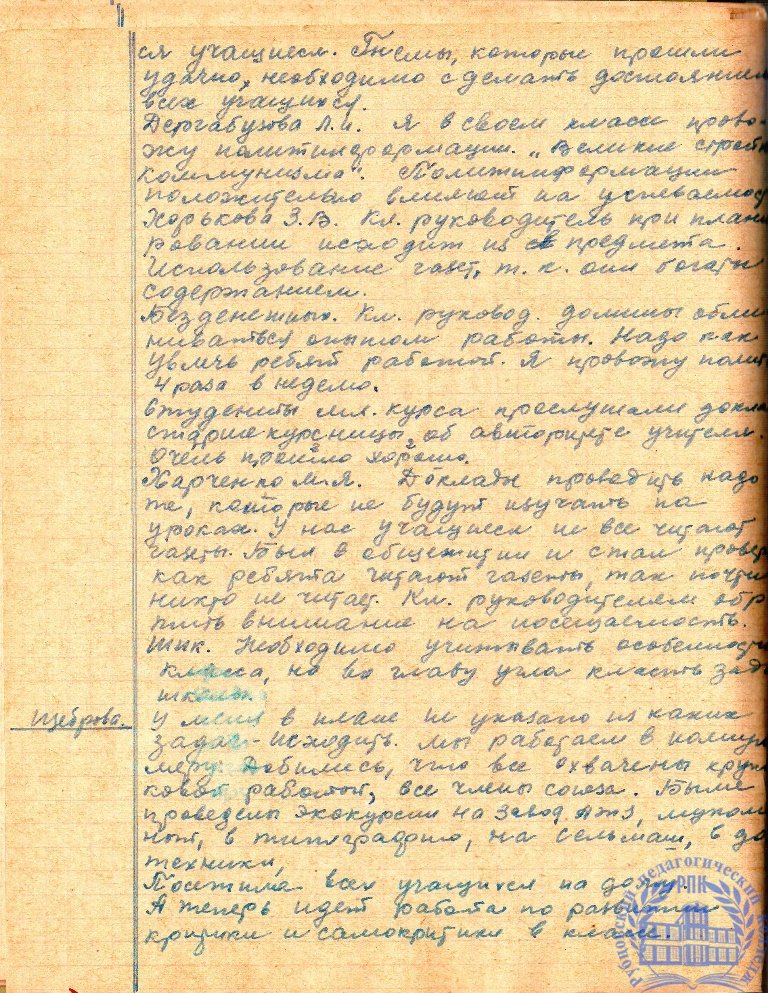 ся учащиеся. Темы, которые прошли
удачно, необходимо сделать достоянием
всех учащихся.
Дергабузова Л.И. Я в своем классе прово-
жу политинформации. „Великие стройк
коммунизма“. Политинформации
положительно влияют на успеваемос
Хорькова З.В. Кл. руководитель при плани
ровании исходит из св предмета.
Использование газет, т.к. они богаты
содержанием.
Безденежных. Кл. руковод. должны обме
ниваться опытом работы. Надо как
увлечь ребят работой. Я провожу полит
4 раза в неделю.
Студенты мл. курса прослушали докла
старшекурсницы, об авторитете учителя.
Очень прошло хорошо.
Харченко М.Я. Доклады проводить надо
те, которые не будут изучать на
уроках. У нас учащиеся не все читают
газеты. Был в общежитии и стал провер
как ребята читают газеты, так почти
никто не читает. Кл. руководителям обр
тить внимание на посещаемость.
Шик. Необходимо учитывать особенности
класса, но во главу угла класть зада
школы.
Щеброва.
У меня в плане не указано из каких
задач исходить. Мы работаем в полную
меру. Добились, что все охвачены круж
ковой работой, все члены союза. Были
проведены экскурсии на завод АТЗ,
в типографию, на Сельмаш, в до
техники,
Посетила всех учащихся на дому.
А теперь идет работа по развитию
критики и самокритики в классе.
Рубцовский педагогический колледж
РПК